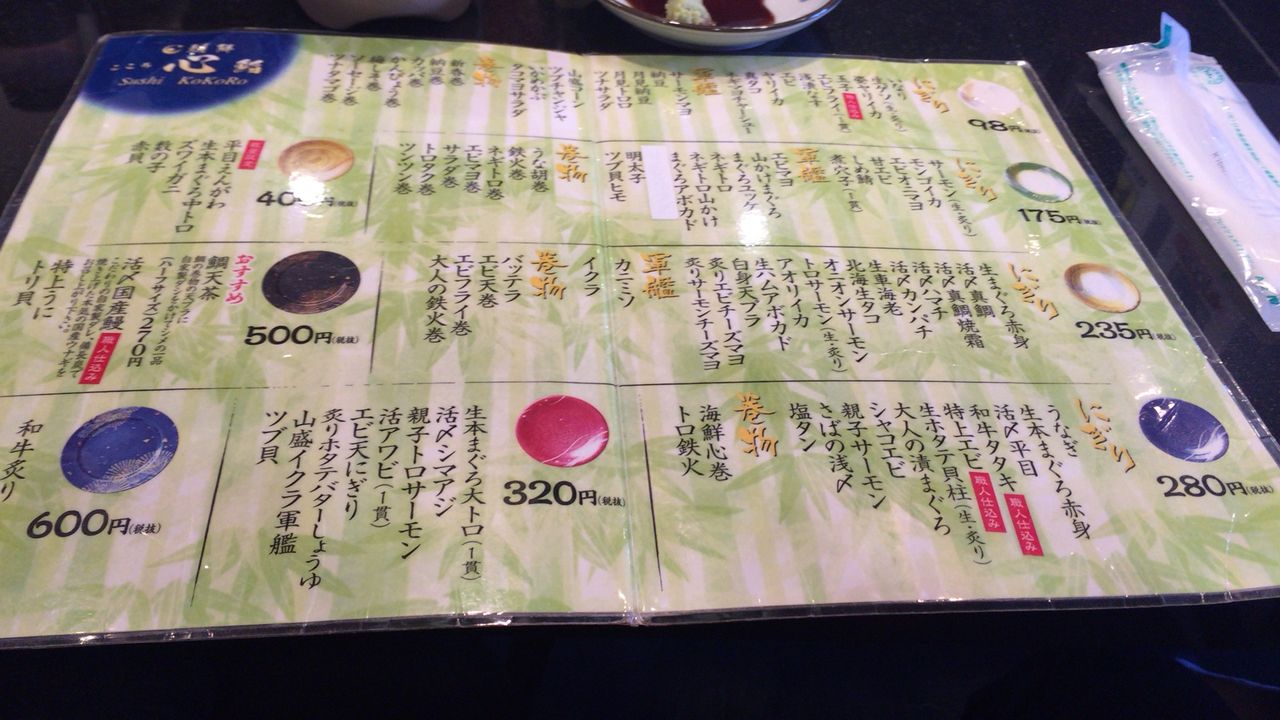 廻鮮
心 鮨
こころ
Sushi KoKoRo
98円(税抜)
にぎり
いなり
生ヤリイカ
玉子
エビフライ(一貫)
職人仕込み
浅漬けなす
エビ
ヤリイカ
真タコ
軍艦
サーモンマヨ
納豆
月見納豆
月見トロロ
ツナサラダ
山盛コーン
ツブチャンジャ
いかめかぶ
タコマヨサラダ
巻物
新香巻
納豆巻
カッパ巻
かんぴょう巻
梅しそ巻
ソーセージ巻
ツナタマゴ巻
175円(税抜)
にぎり
サーモン(生・炙り)
モンゴイカ
エビオニマヨ
甘エビ
しめ鯖
煮穴子(一貫)
軍艦
エビマヨ
山かけまぐろ
まぐろユッケ
ネギトロ
ネギトロ山かけ
まぐろアボカド
明太子
ツブ貝ヒモ
巻物
うな胡巻
鉄火巻
ネギトロ巻
エビマヨ巻
サラダ巻
トロタク巻
ツンツン巻
円(税抜)
数量限定
平目えんがわ
生本まぐろ中トロ
ズワイガニ
数の子
赤貝
235円(税抜)
にぎり
生まぐろ赤身
活〆真鯛
活〆真鯛焼霜
活〆ハマチ
活〆カンパチ
生車海老
北海生タコ
オニオンサーモン
トロサーモン(生・炙り)
アオリイカ
生ハムアボカド
白身天フラ
炙りエビチーズマヨ
炙りサーモンチーズマヨ
軍艦
カニミソ
イクラ
巻物
バッテラ
エビ天巻
エビフライ巻
大人の鉄火巻
500円(税抜)
おすすめ
鯛天茶
(ハーフサイズ)270円
活〆国産鰻
職人仕込み
特上うに
トリ貝
280円(税抜)
にぎり
うなぎ
生本まぐろ赤身
活〆平目
職人仕込み
和牛タタキ
職人仕込み
特上エビ
生ホタテ貝柱(生・炙り)
大人の漬まぐろ
シャコエビ
親子サーモン
さばの浅〆
塩タン
巻物
海鮮心巻
トロ鉄火
320円(税抜)
生本まぐろ大トロ(一貫)
活〆シマアジ
親子トロサーモン
活アワビ(一貫)
エビ天にぎり
炙りホタテバターしょうゆ
山盛イクラ軍艦
ツブ貝
600円(税抜)
和牛炙り